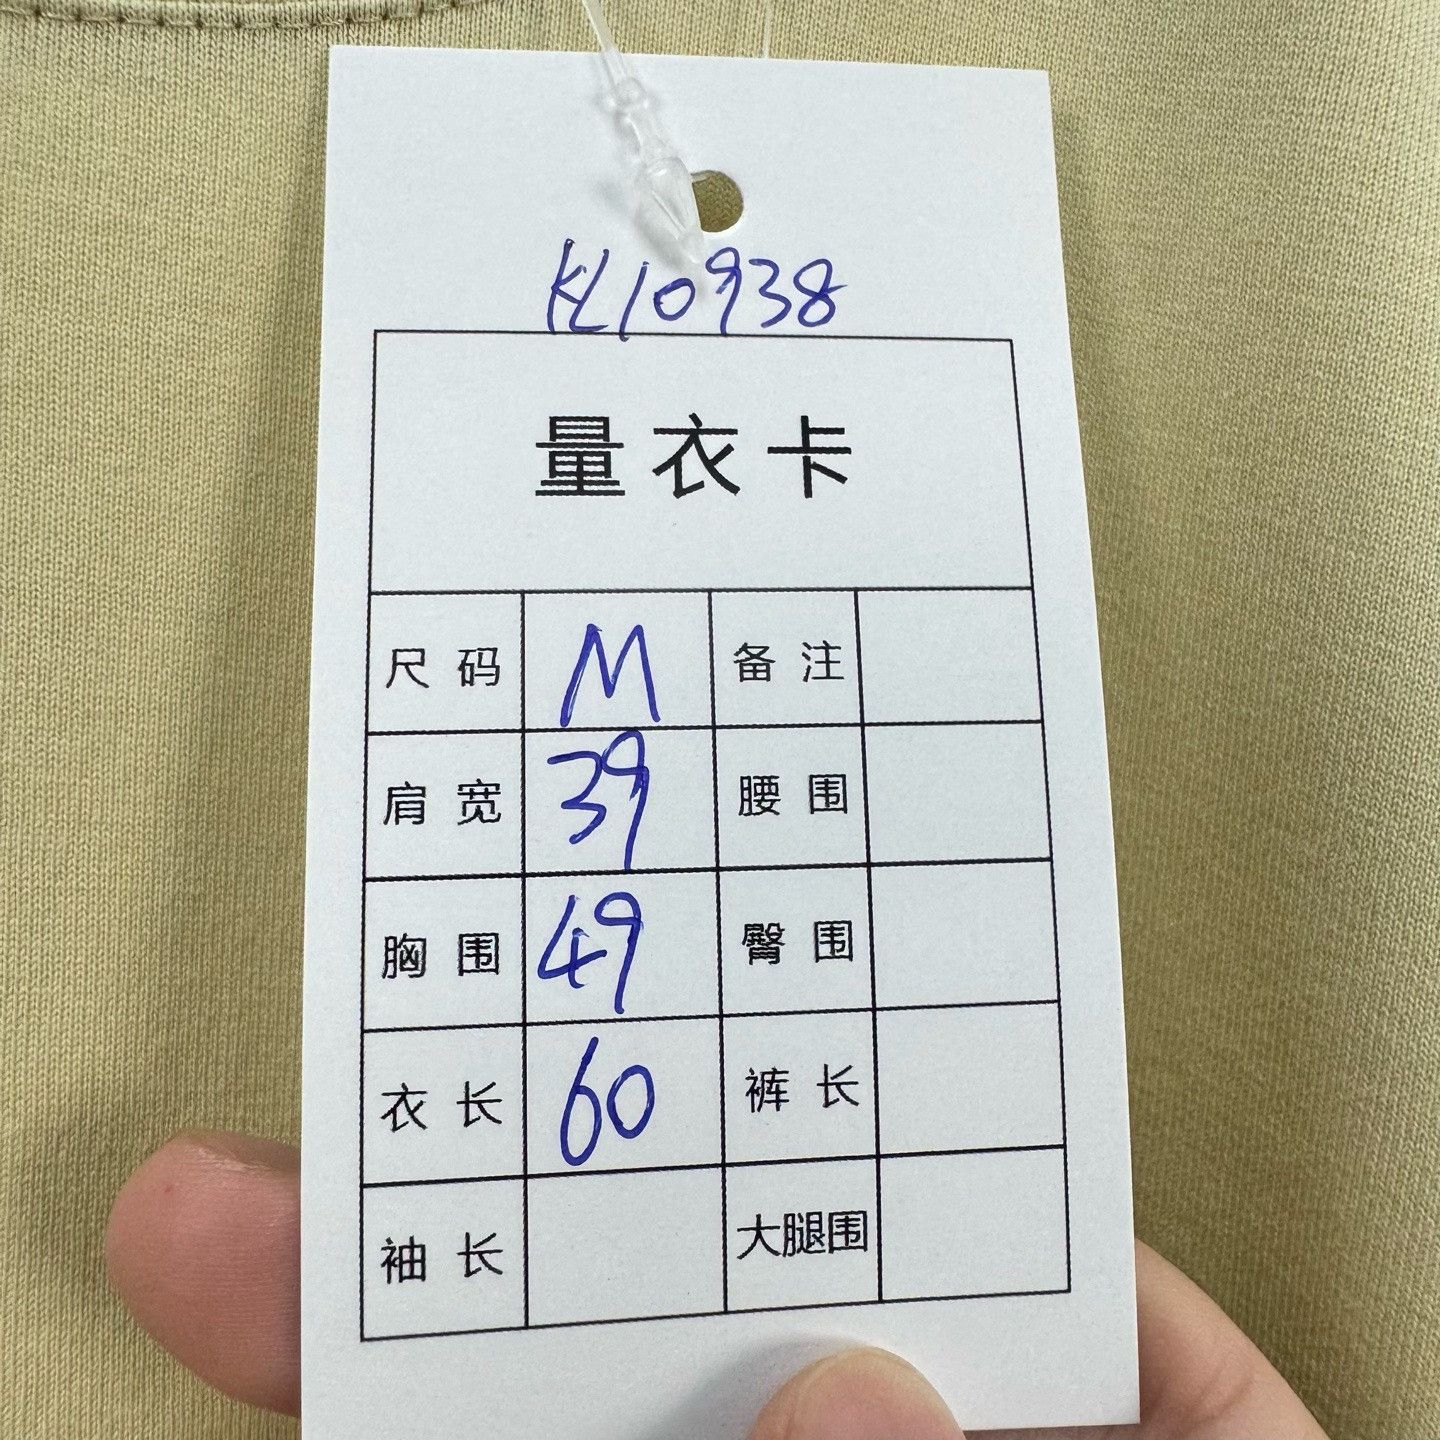 KL10938
量衣卡
尺码 M 备注
肩宽 39 腰围
胸围 49 臀围
衣长 60 裤长
袖长 大腿围